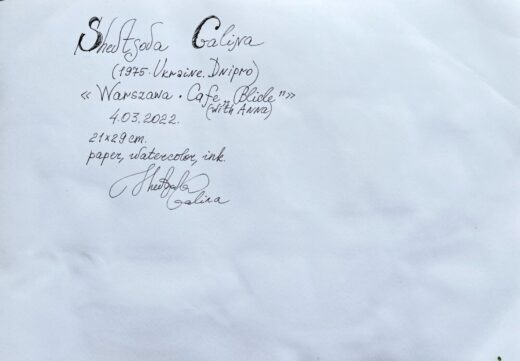 Shedtzoda Galina
(1975. Ukraine. Dnipro)
« Warszawa. Cafe „Blide”»
(with ANNA)
4.03.2022.
21x29cm.
paper, watercolor, ink.
Galina